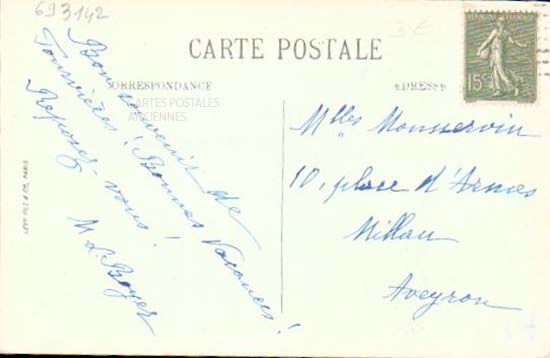 693142
CARTE POSTALE
CORRESPONDANCE
ADRESSE
CARTES POSTALES
ANCIENNES
RÉPUBLIQUE FRANÇAISE
15c
Bon souvenir de
Fourvières! Bonnes Vacances!
Reposez-vous!
M. L. Boyer
Mlles Monservin
10, place d'Armes
Millau
Aveyron